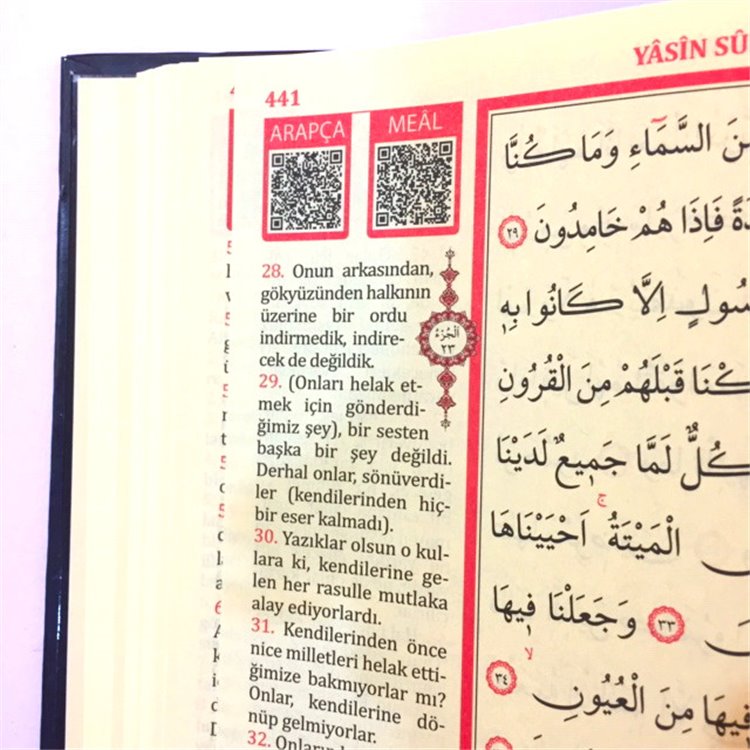 YÂSÎN SÛ
441
ARAPÇA
MEÂL
28. Onun arkasından,
gökyüzünden halkının
üzerine bir ordu
indirmedik, indire-
cek de değildik.
29. (Onları helak et-
mek için gönderdi-
ğimiz şey), bir sesten
başka bir şey değildi.
Derhal onlar, sönüverdi-
ler (kendilerinden hiç-
bir eser kalmadı).
30. Yazıklar olsun o kul-
lara ki, kendilerine ge-
len her rasulle mutlaka
alay ediyorlardı.
31. Kendilerinden önce
nice milletleri helak etti-
ğimize bakmıyorlar mı?
Onlar, kendilerine dö-
nüp gelmiyorlar.
32. Onların
اَلْجُزْءُ
٢٣
مِنَ السَّمَٓاءِ وَمَا كُنَّا
فَاِذَا هُمْ خَامِدُونَ ٢٩
اِلَّا كَانُوا بِه۪
قَبْلَهُمْ مِنَ الْقُرُونِ
كُلٌّ لَمَّا جَم۪يعٌ لَدَيْنَا
الْمَيْتَةُ اَحْيَيْنَاهَا
٣٣ وَجَعَلْنَا ف۪يهَا
ف۪يهَا مِنَ الْعُيُونِ ٣٤